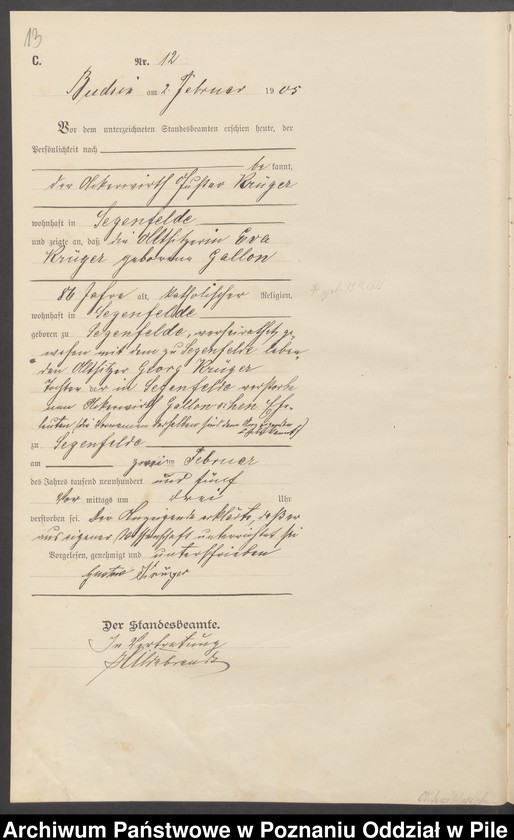 13
C.
Nr. 12
Budsin am 2. Februar 1905
Vor dem unterzeichneten Standesbeamten erschien heute, der
Persönlichkeit nach
be kannt,
der Ackerwirth Gustav Krüger
wohnhaft in Segenfelde
und zeigte an, daß die Altsitzerin Eva
Krüger geborene Gallon
86 Jahre alt, katholischer Religion,
wohnhaft in Segenfelde
geboren zu Segenfelde, verheirathet ge
wesen mit dem zu Segenfelde leben
den Altsitzer Georg Krüger
Tochter der in Segenfelde verstorbe
nen Ackerwirth Gallon'schen Ehe-
leuten (die Vornamen derselben sind dem
zu Segenfelde
am zweiten Februar
des Jahres tausend neunhundert und fünf
Vor mittags um drei Uhr
verstorben sei. Der Anzeigende erklärte, daß er
aus eigener Wissenschaft unterrichtet sei
Vorgelesen, genehmigt und unterschrieben
Gustav Krüger
Der Standesbeamte.
In Vertretung
Hildebrandt
Archiwum Państwowe w Poznaniu Oddział w Pile